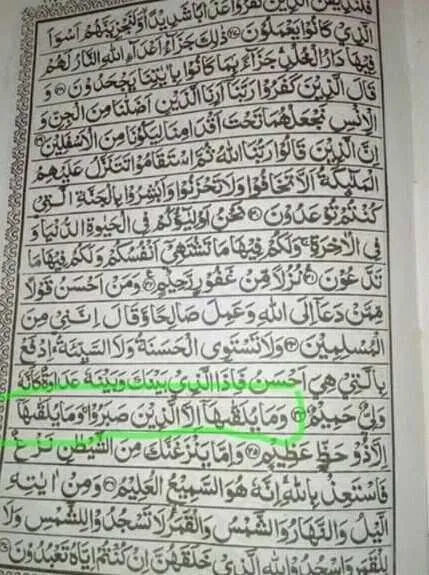 فَلَنُذِيْقَنَّ الَّذِيْنَ كَفَرُوْا عَذَابًا شَدِيْدًا وَّلَنَجْزِيَنَّهُمْ اَسْوَاَ
الَّذِيْ كَانُوْا يَعْمَلُوْنَ ۝۲۷ ذٰلِكَ جَزَآءُ اَعْدَآءِ اللّٰهِ النَّارُ لَهُمْ
فِيْهَا دَارُ الْخُلْدِ جَزَآءً بِمَا كَانُوْا بِاٰيٰتِنَا يَجْحَدُوْنَ ۝۲۸ وَ
قَالَ الَّذِيْنَ كَفَرُوْا رَبَّنَا اَرِنَا الَّذَيْنِ اَضَلّٰنَا مِنَ الْجِنِّ وَ
الْاِنْسِ نَجْعَلْهُمَا تَحْتَ اَقْدَامِنَا لِيَكُوْنَا مِنَ الْاَسْفَلِيْنَ ۝۲۹
اِنَّ الَّذِيْنَ قَالُوْا رَبُّنَا اللّٰهُ ثُمَّ اسْتَقَامُوْا تَتَنَزَّلُ عَلَيْهِمُ
الْمَلٰٓئِكَةُ اَلَّا تَخَافُوْا وَلَا تَحْزَنُوْا وَاَبْشِرُوْا بِالْجَنَّةِ الَّتِيْ
كُنْتُمْ تُوْعَدُوْنَ ۝۳۰ نَحْنُ اَوْلِيٰٓؤُكُمْ فِي الْحَيٰوةِ الدُّنْيَا وَ
فِي الْاٰخِرَةِ ۚ وَلَكُمْ فِيْهَا مَا تَشْتَهِيْٓ اَنْفُسُكُمْ وَلَكُمْ فِيْهَا مَا
تَدَّعُوْنَ ۝۳۱ نُزُلًا مِّنْ غَفُوْرٍ رَّحِيْمٍ ۝۳۲ وَمَنْ اَحْسَنُ قَوْلًا
مِّمَّنْ دَعَآ اِلَى اللّٰهِ وَعَمِلَ صَالِحًا وَّقَالَ اِنَّنِيْ مِنَ
الْمُسْلِمِيْنَ ۝۳۳ وَلَا تَسْتَوِي الْحَسَنَةُ وَلَا السَّيِّئَةُ ؕ اِدْفَعْ
بِالَّتِيْ هِيَ اَحْسَنُ فَاِذَا الَّذِيْ بَيْنَكَ وَبَيْنَهٗ عَدَاوَةٌ كَاَنَّهٗ
وَلِيٌّ حَمِيْمٌ ۝۳۴ وَمَا يُلَقّٰىهَآ اِلَّا الَّذِيْنَ صَبَرُوْا ۚ وَمَا يُلَقّٰىهَآ
اِلَّا ذُوْ حَظٍّ عَظِيْمٍ ۝۳۵ وَاِمَّا يَنْزَغَنَّكَ مِنَ الشَّيْطٰنِ نَزْغٌ
فَاسْتَعِذْ بِاللّٰهِ ؕ اِنَّهٗ هُوَ السَّمِيْعُ الْعَلِيْمُ ۝۳۶ وَمِنْ اٰيٰتِهِ
الَّيْلُ وَالنَّهَارُ وَالشَّمْسُ وَالْقَمَرُ ؕ لَا تَسْجُدُوْا لِلشَّمْسِ وَلَا
لِلْقَمَرِ وَاسْجُدُوْا لِلّٰهِ الَّذِيْ خَلَقَهُنَّ اِنْ كُنْتُمْ اِيَّاهُ تَعْبُدُوْنَ ۝۳۷